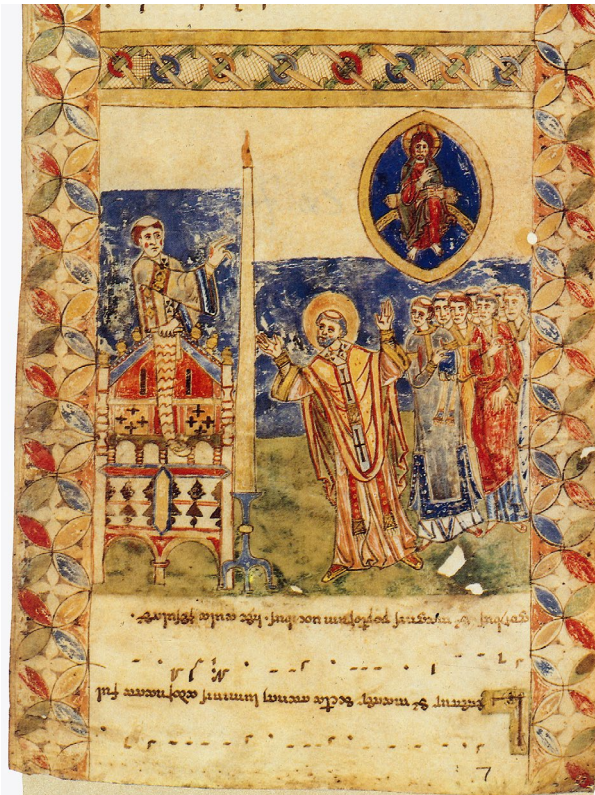 Letetur & mater eccla tanti luminis adornata ful
goribus & magnis poplorum uocibus. hec aula resultet
7